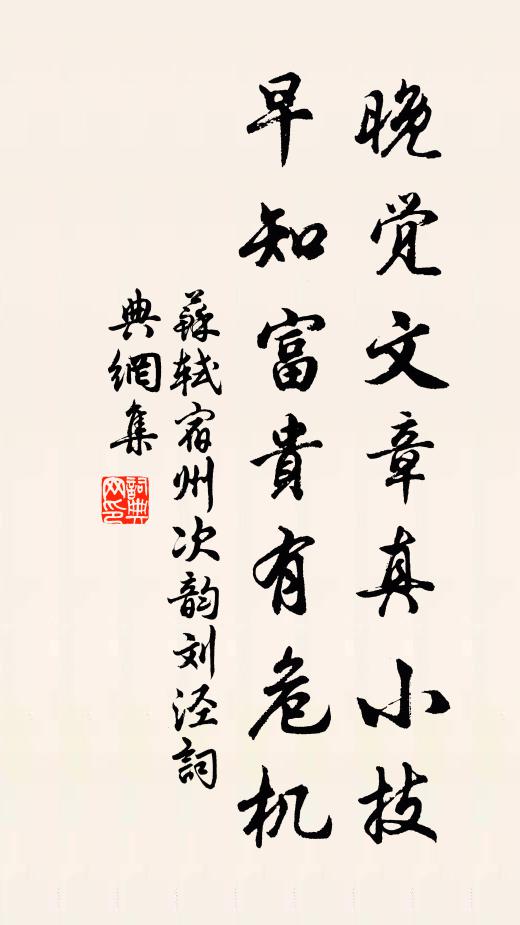 晚觉文章真小技
早知富貴有危机
蘇轼宿州次韵刘泾詞
典網集
詞典网印